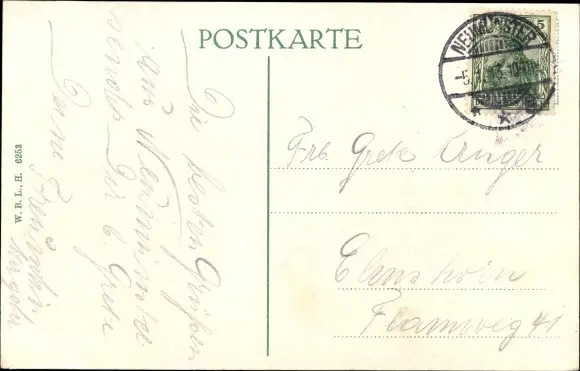 POSTKARTE
Die besten Grüßen
aus Neumünster
sendet Dir l. Grete
Deine Freundin
W. B. L., H. 6253
5
NEUMÜNSTER
-5.
Frl. Grete Unger
Elmshorn
Flamweg 41